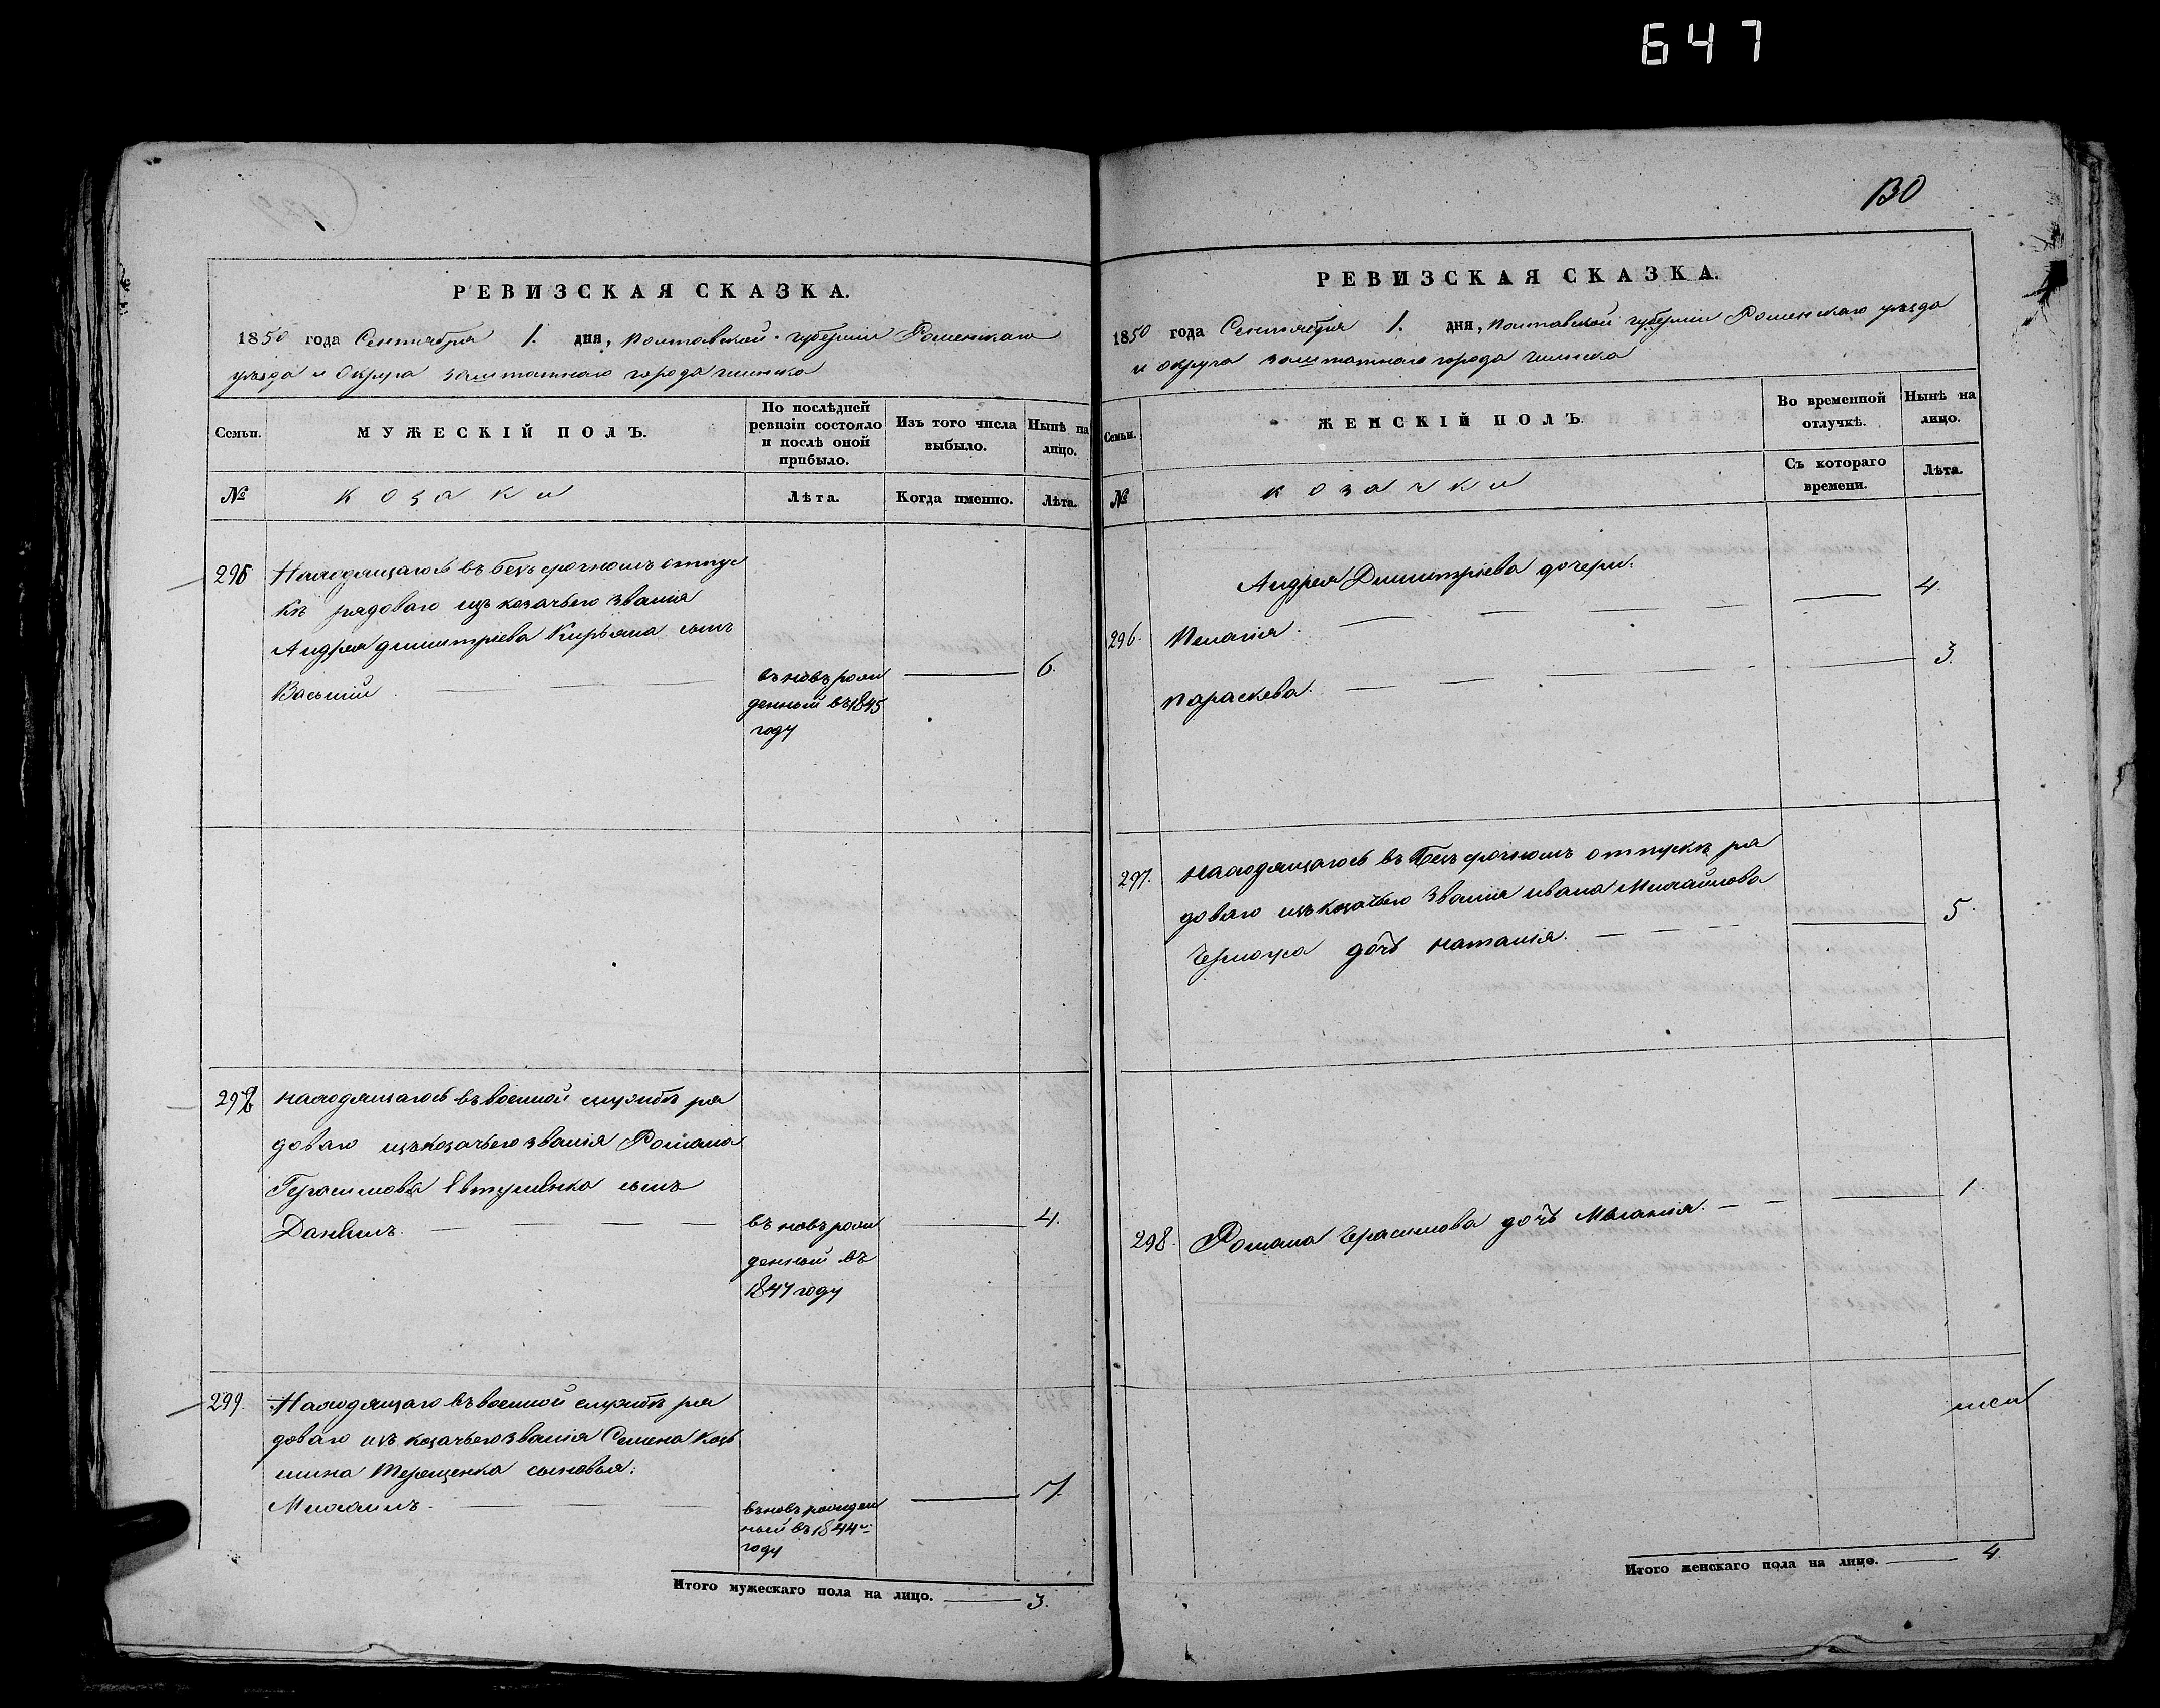 647
130
РЕВИЗСКАЯ СКАЗКА.
1850 года Сентября 1. дня, Полтавской губерніи Роменскаго
уѣзда и округа заштатнаго города Глинска
Семьи.
МУЖЕСКІЙ ПОЛЪ.
По послѣдней ревизіи состояло и послѣ оной прибыло.
Изъ того числа выбыло.
Нынѣ на лицо.
№
козаки
Лѣта.
Когда именно.
Лѣта.
296 Находящагося въ безъсрочномъ отпус
кѣ рядоваго изъ козачьего званія
Андрея Димитріева Кирьяна сынъ
Василій. въновъ рож 6.
денный въ 1845
году
298 находящагося въ военной службѣ ря
доваго изъ козачьего званія Романа
Герасимова Евтушенка сынъ
Даніилъ. въ новъ рож 4.
денный въ
1847 году
299. Находящаго въ военной службѣ ря
доваго изъ козачьего званія Семена Козь
мина Терещенка сыновья:
Михаилъ. въновъ рожден 7.
ный въ 1844м
году
Итого мужескаго пола на лицо. 3.
РЕВИЗСКАЯ СКАЗКА.
1850 года Сентября 1. дня, Полтавской губерніи Роменскаго уѣзда
и округа заштатнаго города Глинска
Семьи.
ЖЕНСКІЙ ПОЛЪ.
Во временной отлучкѣ.
Нынѣ на лицо.
№
козачки
Съ котораго времени.
Лѣта.
Андрея Димитріева дочери:
296. Пелагія. 4.
Параскева. 3.
297. находящагося въ безъсрочномъ отпускѣ ря
доваго изъ козачьего званія Ивана Михайлова
дочь Наталія. 5.
298. Романа Герасимова дочь Меланія. 1.
Итого женскаго пола на лицо. 4.